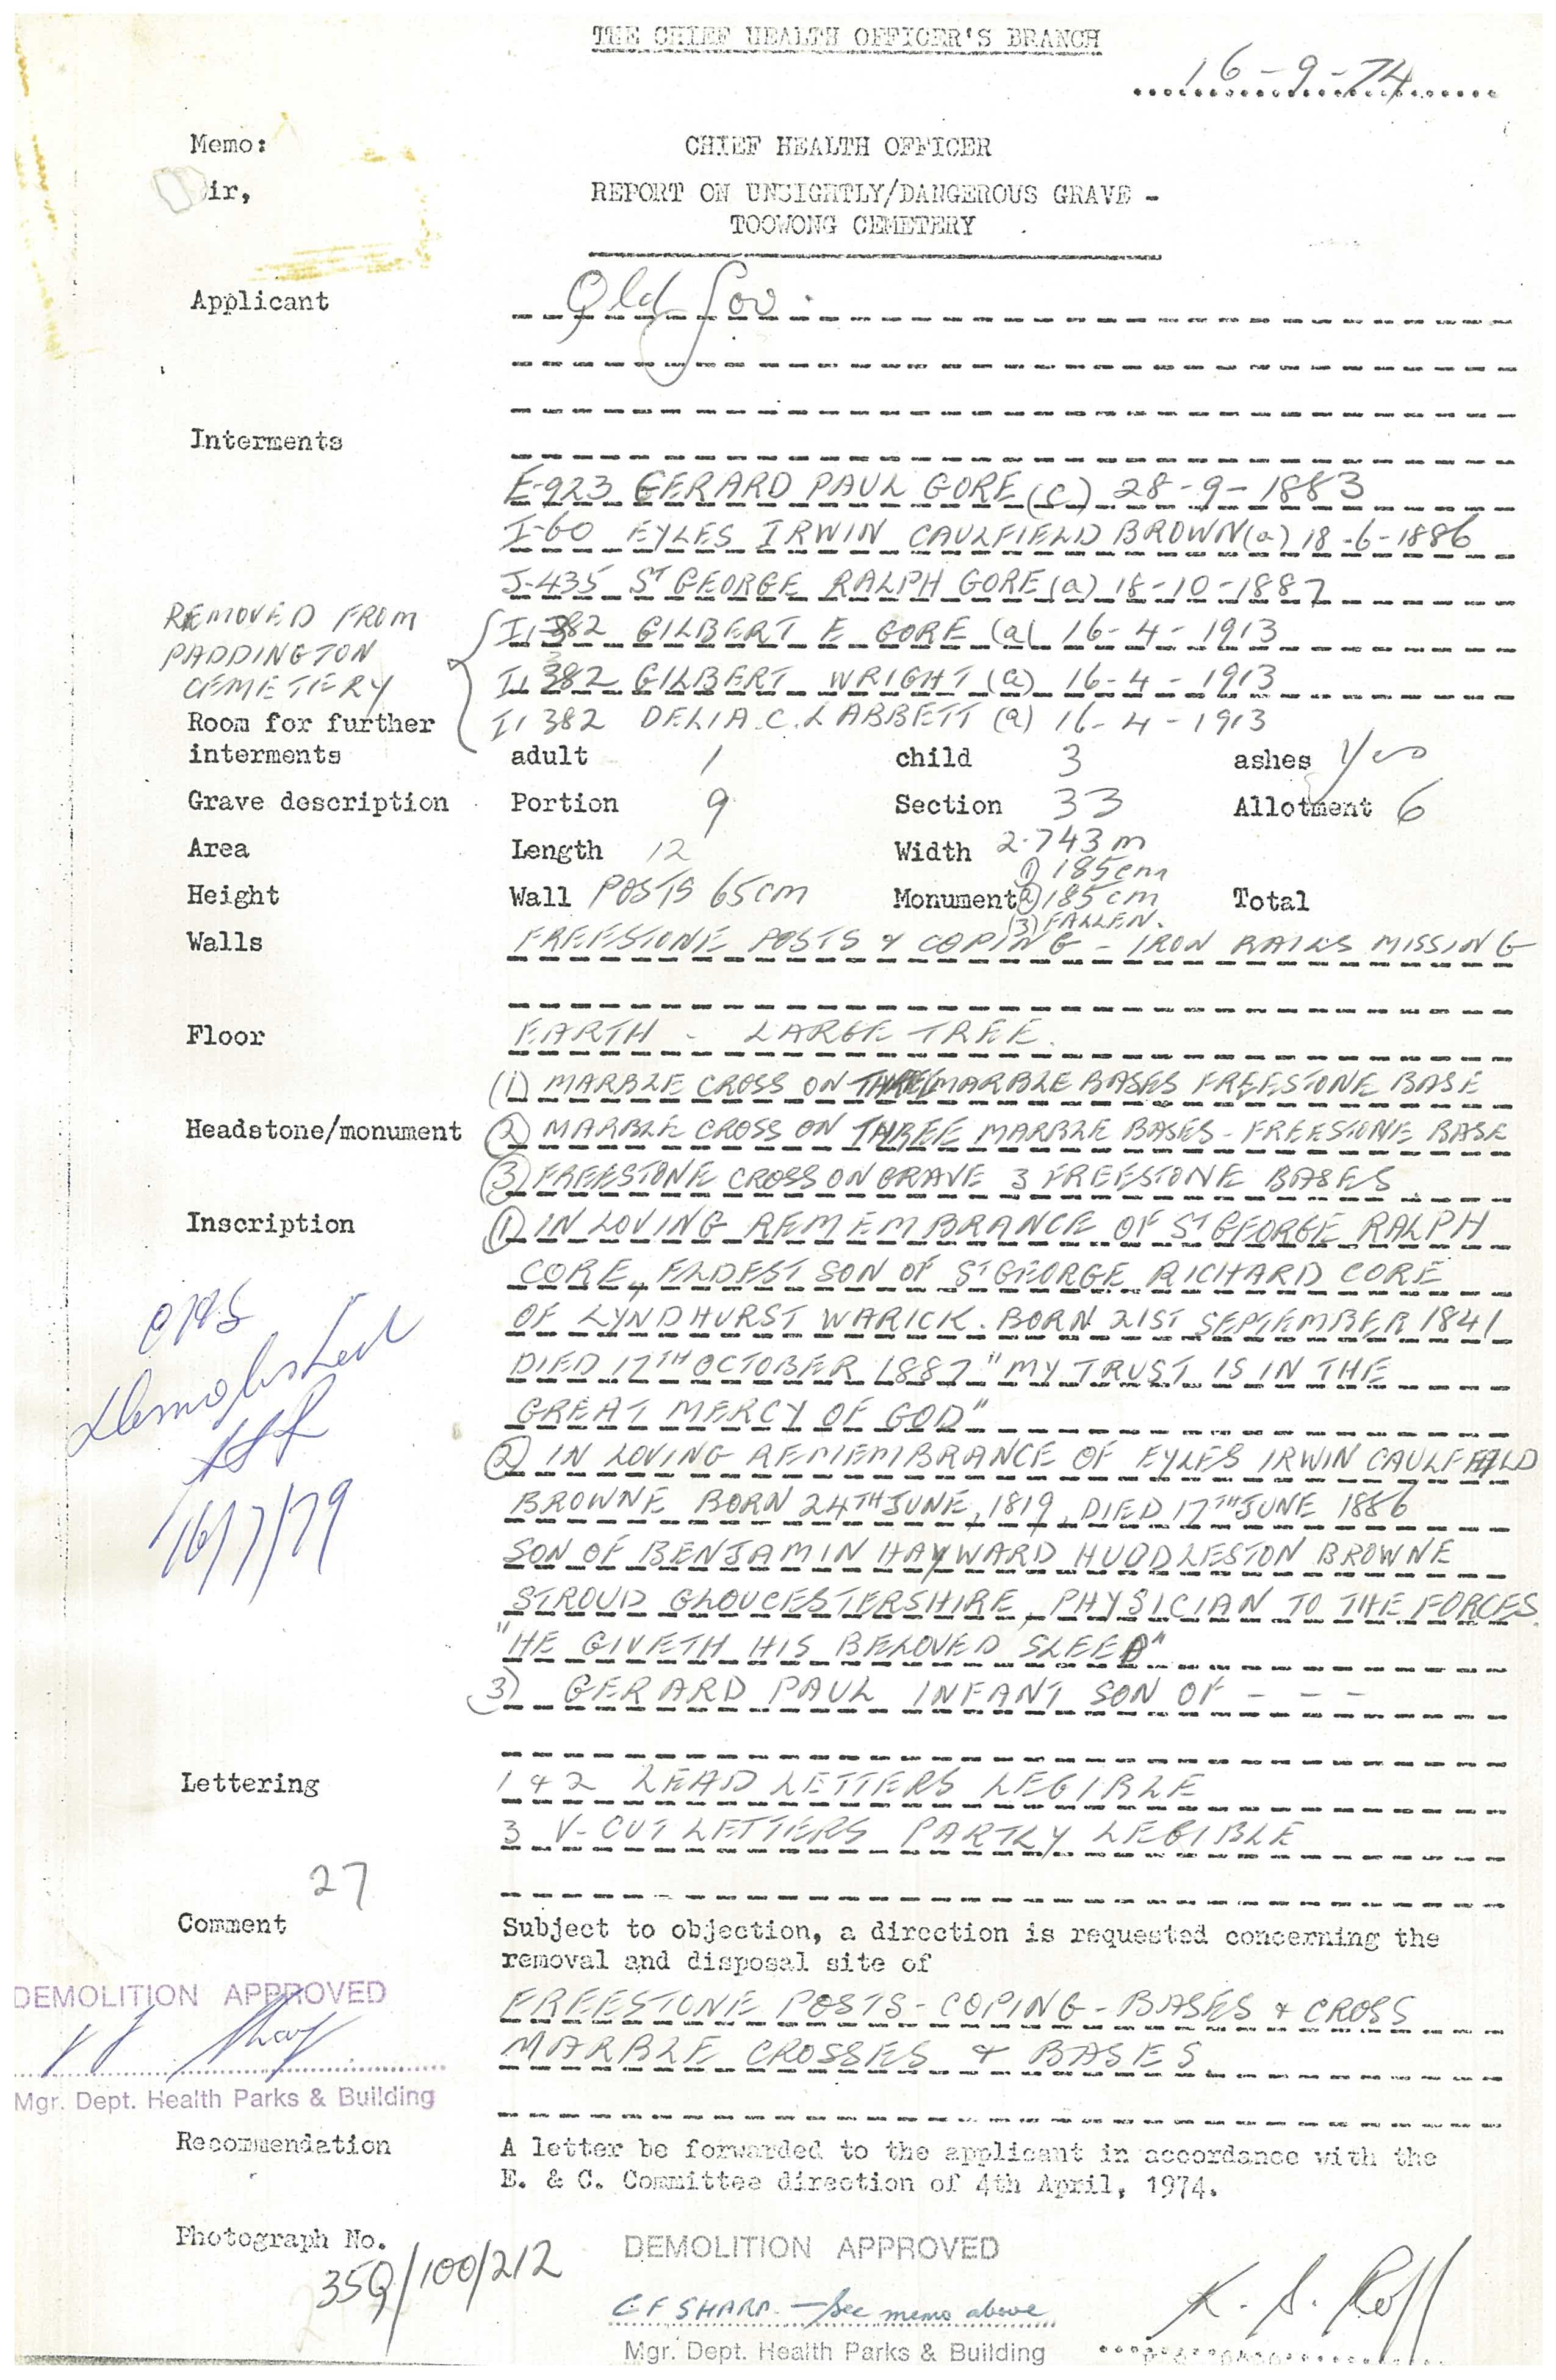 THE CHIEF HEALTH OFFICER'S BRANCH
16-9-74
Memo: CHIEF HEALTH OFFICER
ir, REPORT ON UNSIGHTLY/DANGEROUS GRAVE -
TOOWONG CEMETERY
Applicant Qld Gov.
Interments
E-923 GERARD PAUL GORE (c) 28-9-1883
I-60 EYLES IRWIN CAULFIELD BROWN (a) 18-6-1886
J-435 ST GEORGE RALPH GORE (a) 18-10-1887
REMOVED FROM I1382 GILBERT E GORE (a) 16-4-1913
PADDINGTON I1382 GILBERT WRIGHT (a) 16-4-1913
CEMETERY
Room for further I1382 DELIA.C.LABBETT (a) 16-4-1913
interments adult 1 child 3 ashes Yes
Grave description Portion 9 Section 33 Allotment 6
Area Length 12 Width 2.743m
(1) 185cm
Height Wall POSTS 65cm Monument (2) 185cm Total
(3) FALLEN.
Walls FREESTONE POSTS & COPING - IRON RAILS MISSING
Floor EARTH - LARGE TREE.
(1) MARBLE CROSS ON THREE MARBLE BASES FREESTONE BASE
Headstone/monument (2) MARBLE CROSS ON THREE MARBLE BASES - FREESTONE BASE
(3) FREESTONE CROSS ON GRAVE 3 FREESTONE BASES
Inscription (1) IN LOVING REMEMBRANCE OF ST GEORGE RALPH
CORE, ELDEST SON OF ST GEORGE RICHARD CORE
OF LYNDHURST WARICK. BORN 21ST SEPTEMBER 1841
DIED 17TH OCTOBER 1887 "MY TRUST IS IN THE
GREAT MERCY OF GOD"
Demolished
16/7/79
(2) IN LOVING REMEMBRANCE OF EYLES IRWIN CAULFEILD
BROWNE BORN 24TH JUNE, 1819, DIED 17TH JUNE 1886
SON OF BENJAMIN HAYWARD HUDDLESTON BROWNE
STROUD GLOUCESTERSHIRE, PHYSICIAN TO THE FORCES.
"HE GIVETH HIS BELOVED SLEEP"
(3) GERARD PAUL INFANT SON OF - - -
Lettering 1 & 2 LEAD LETTERS LEGIBLE
3 V-CUT LETTERS PARTLY LEGIBLE
27
Comment Subject to objection, a direction is requested concerning the
removal and disposal site of
DEMOLITION APPROVED
FREESTONE POSTS - COPING - BASES & CROSS
MARBLE CROSSES & BASES
Mgr. Dept. Health Parks & Building
Recommendation A letter be forwarded to the applicant in accordance with the
E. & C. Committee direction of 4th April, 1974.
Photograph No. 35Q/100/212
DEMOLITION APPROVED
C F SHARP. - See memo above
K. S. Roff
Mgr. Dept. Health Parks & Building